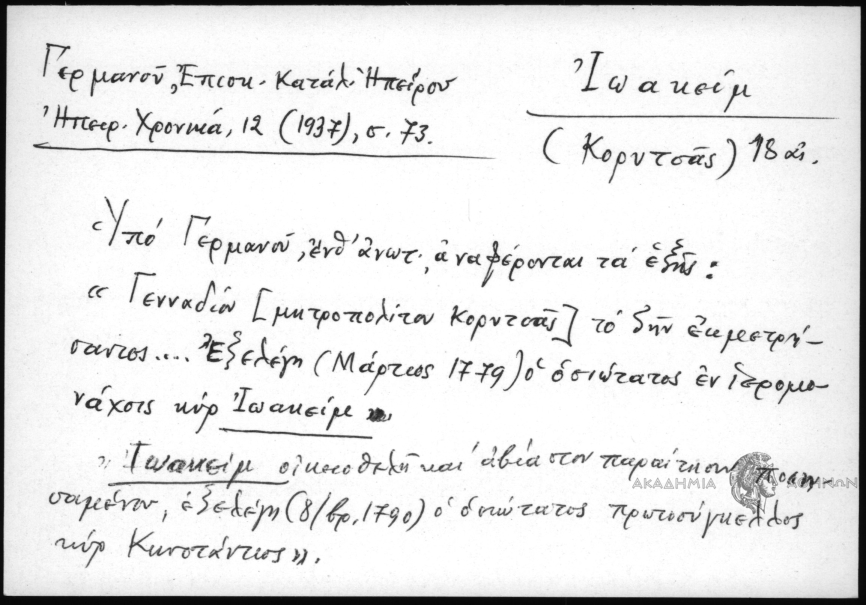 Γερμανοῦ, Ἐπισκ. Κατάλ. Ἠπείρου
Ἠπειρ. Χρονικά, 12 (1937), σ. 73.
Ἰωακείμ
(Κορυτσᾶς) 18 αἰ.
Ὑπό Γερμανοῦ, ἔνθ' ἄνωτ., ἀναφέρονται τά ἑξῆς:
« Γενναδίου [μητροπολίτου Κορυτσᾶς] τό ζῆν ἐκμετρή-
σαντος.... Ἐξελέγη (Μάρτιος 1779) ὁ ὁσιώτατος ἐν ἱερομο-
νάχοις κύρ Ἰωακείμ »
» Ἰωακείμ οἰκειοθελῆ καί ἀβίαστον παραίτησιν ποιη-
σαμένου, ἐξελέγη (8/βρ. 1790) ὁ ὁσιώτατος πρωτοσύγκελλος
κύρ Κωνστάντιος».
ΑΚΑΔΗΜΙΑ ΑΘΗΝΩΝ